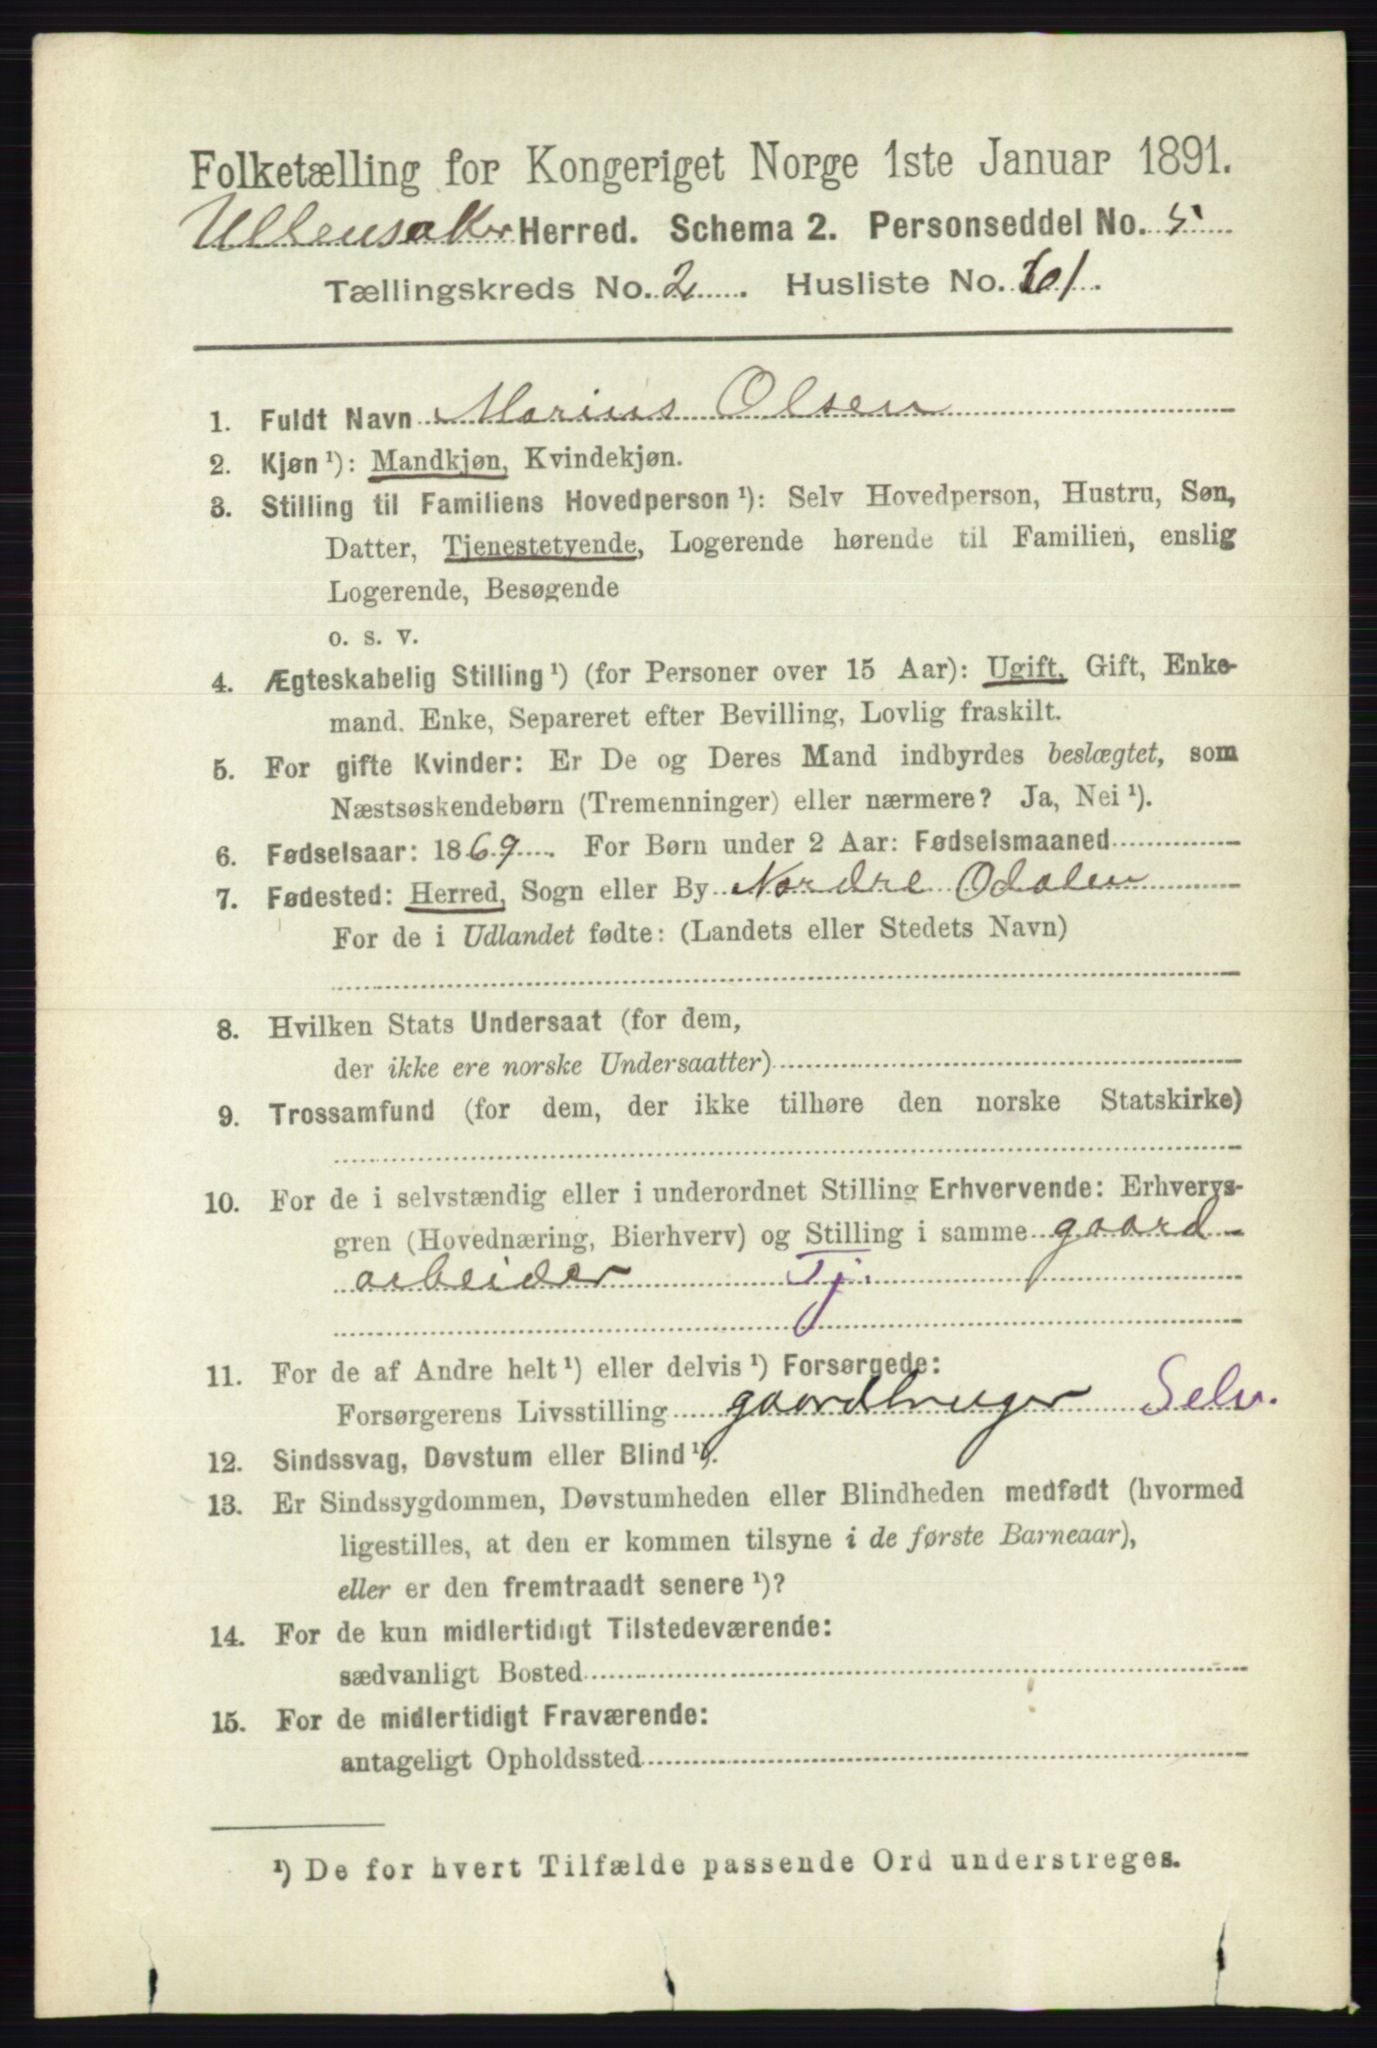 Folketælling for Kongeriget Norge 1ste Januar 1891.
Ullensaker Herred. Schema 2. Personseddel No. 5
Tællingskreds No. 2. Husliste No. 61.
1. Fuldt Navn Marius Olsen
2. Kjøn¹): Mandkjøn, Kvindekjøn.
3. Stilling til Familiens Hovedperson¹): Selv Hovedperson, Hustru, Søn,
Datter, Tjenestetyende, Logerende hørende til Familien, enslig
Logerende, Besøgende
o. s. v.
4. Ægteskabelig Stilling¹) (for Personer over 15 Aar): Ugift, Gift, Enke-
mand, Enke, Separeret efter Bevilling, Lovlig fraskilt.
5. For gifte Kvinder: Er De og Deres Mand indbyrdes beslægtet, som
Næstsøskendebørn (Tremenninger) eller nærmere? Ja, Nei¹).
6. Fødselsaar: 1869. For Børn under 2 Aar: Fødselsmaaned
7. Fødested: Herred, Sogn eller By Nordre Odalen
For de i Udlandet fødte: (Landets eller Stedets Navn)
8. Hvilken Stats Undersaat (for dem,
der ikke ere norske Undersaatter)
9. Trossamfund (for dem, der ikke tilhøre den norske Statskirke)
10. For de i selvstændig eller i underordnet Stilling Erhvervende: Erhvervs-
gren (Hovednæring, Bierhverv) og Stilling i samme gaard-
arbeider Tj.
11. For de af Andre helt¹) eller delvis¹) Forsørgede:
Forsørgerens Livsstilling gaardbruger Selv.
12. Sindssvag, Døvstum eller Blind¹).
13. Er Sindssygdommen, Døvstumheden eller Blindheden medfødt (hvormed
ligestilles, at den er kommen tilsyne i de første Barneaar),
eller er den fremtraadt senere¹)?
14. For de kun midlertidigt Tilstedeværende:
sædvanligt Bosted
15. For de midlertidigt Fraværende:
antageligt Opholdssted
¹) De for hvert Tilfælde passende Ord understreges.